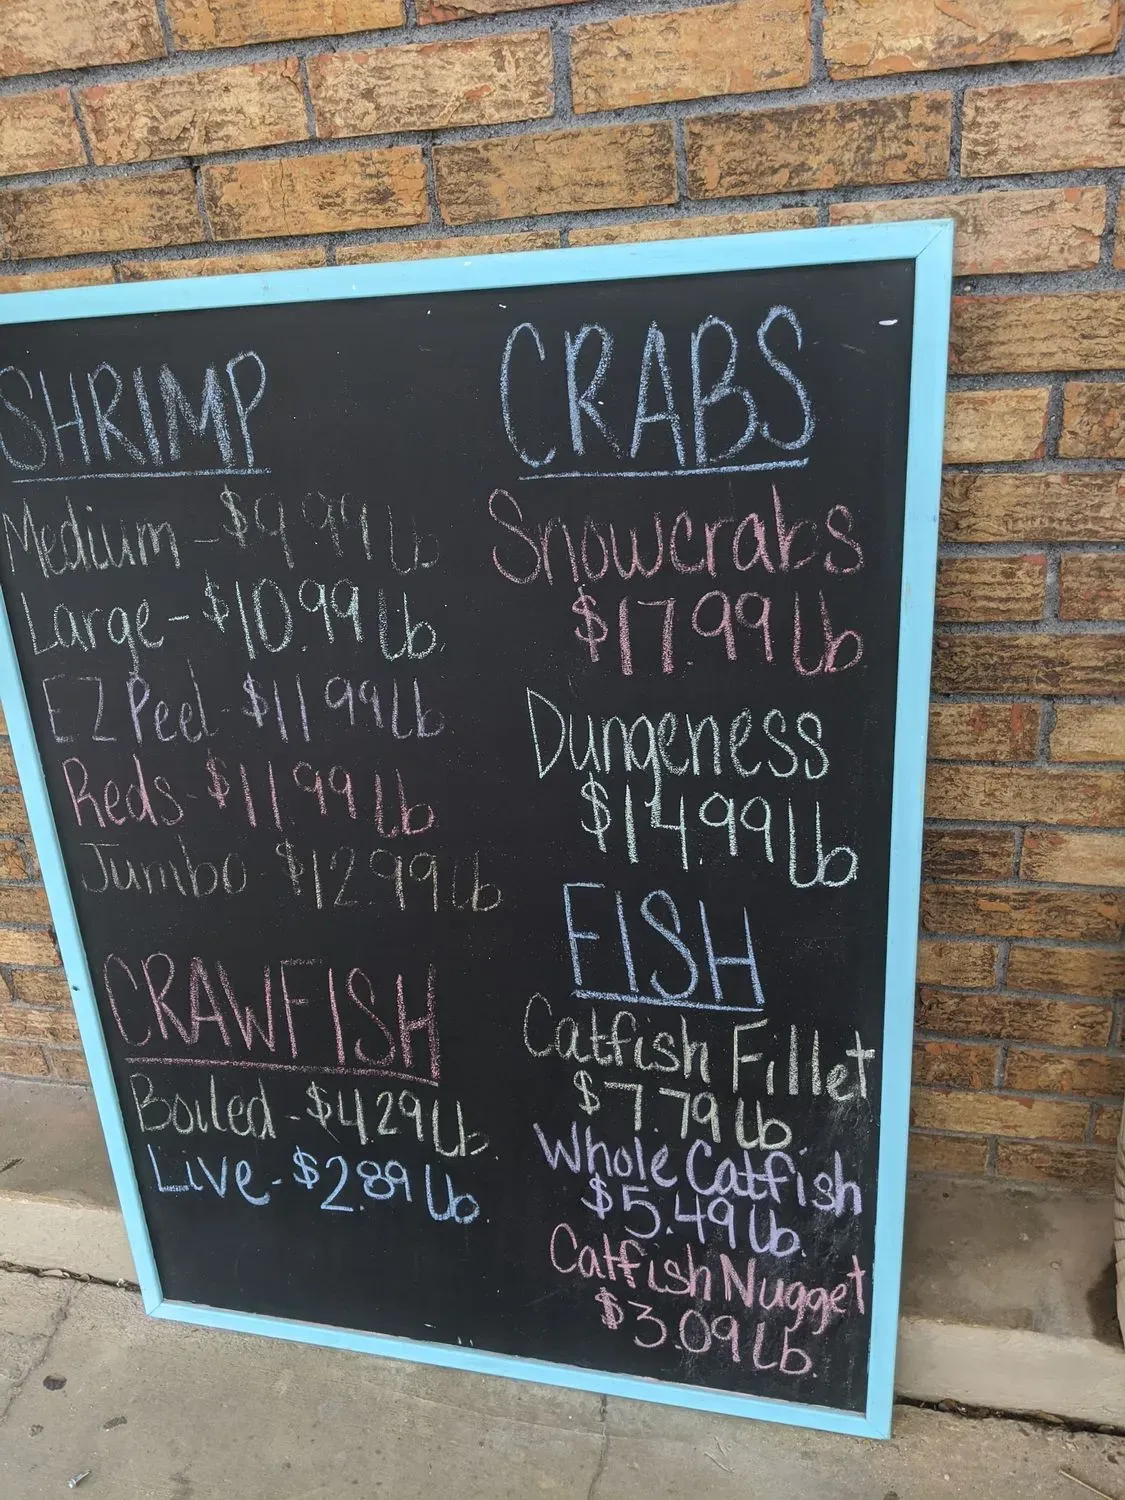 SHRIMP
Medium - $9.99 Lb
Large - $10.99 Lb.
EZ Peel - $11.99 Lb
Reds - $11.99 Lb
Jumbo - $12.99 Lb
CRAWFISH
Boiled - $4.29 Lb.
Live - $2.89 Lb.
CRABS
Snowcrabs
$17.99 Lb
Dungeness
$14.99 Lb
FISH
Catfish Fillet
$7.79 Lb
Whole Catfish
$5.49 Lb.
Catfish Nugget
$3.09 Lb.